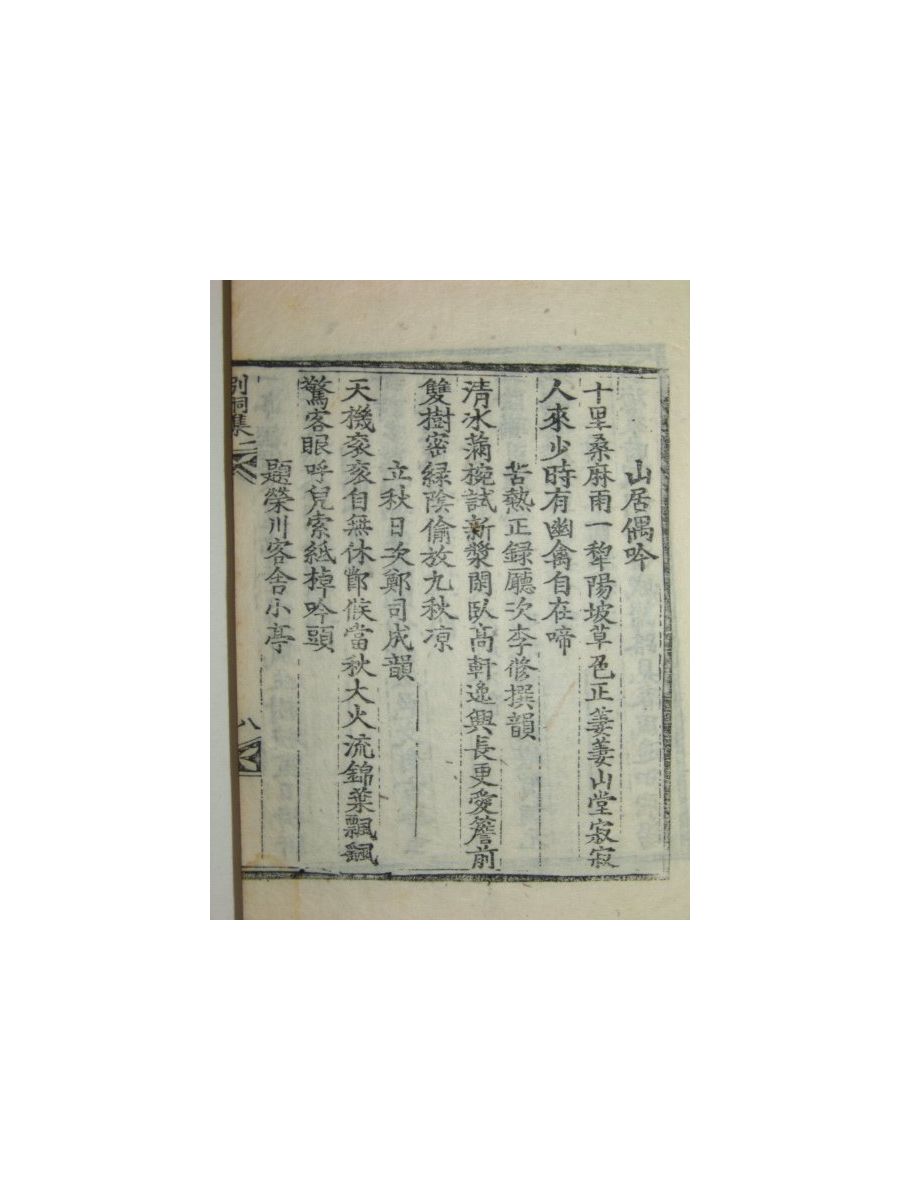 山居偶吟
十里桑麻雨一犂陽坡草色正萋萋山堂寂寂
人來少時有幽禽自在啼
苦熱正録廳次李修撰韻
清水滿椀試新漿閑臥高軒逸興長更愛簷前
雙樹密緑陰偷放九秋凉
立秋日次鄭司成韻
天機袞袞自無休節候當秋大火流錦葉飄飄
驚客眼呼兒索紙掉吟頭
題榮川客舍小亭
別洞集二
八